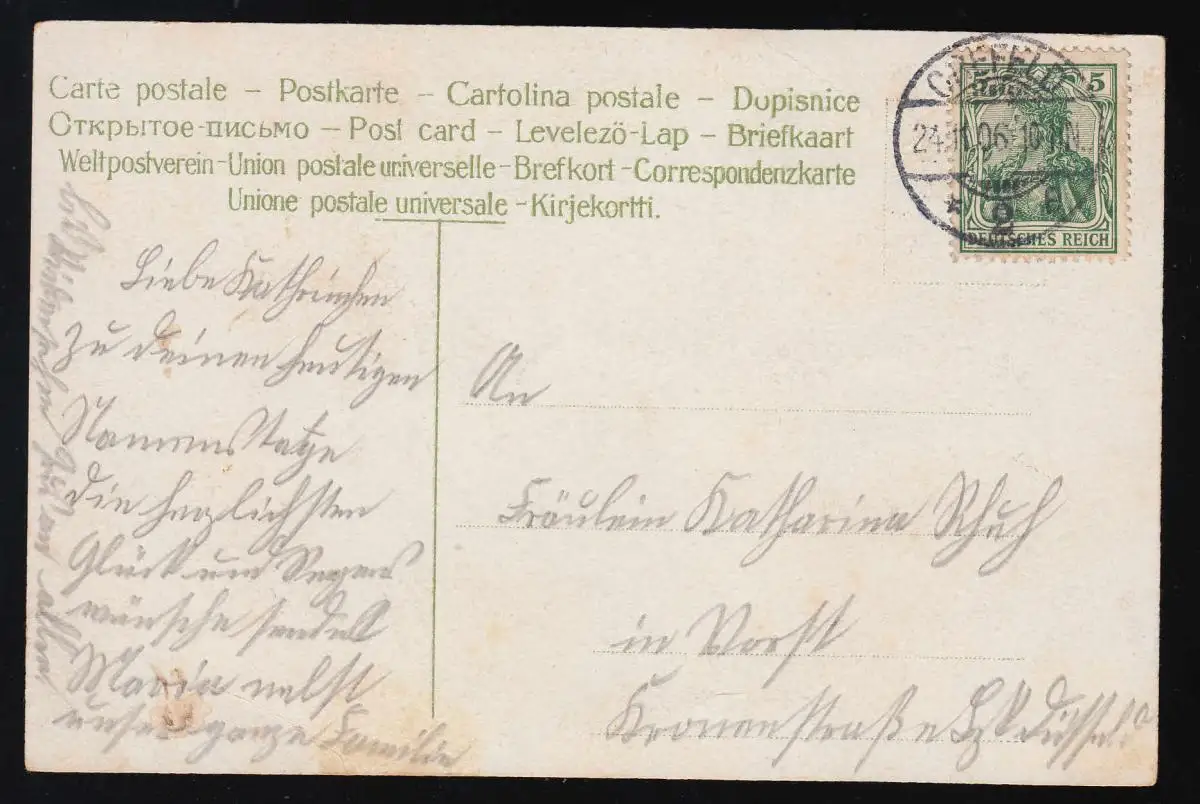 Carte postale – Postkarte – Cartolina postale – Dopisnice
Открытое-письмо – Post card – Levelezö-Lap – Briefkaart
Weltpostverein-Union postale universelle-Brefkort-Correspondenzkarte
Unione postale universale -Kirjekortti.
CREFELD
24.11.06 10-11N
* 2
5 5
DEUTSCHES REICH
Liebe Kathrinchen
zu deinen heutigen
Namenstage
die herzlichsten
Glück und Segens
wünsche sendet
Maria nebst
unser ganze Familie
von allen
An
Fräulein Katharina Schuh
in Vorst
Kronenstraße Bzk Düsseld